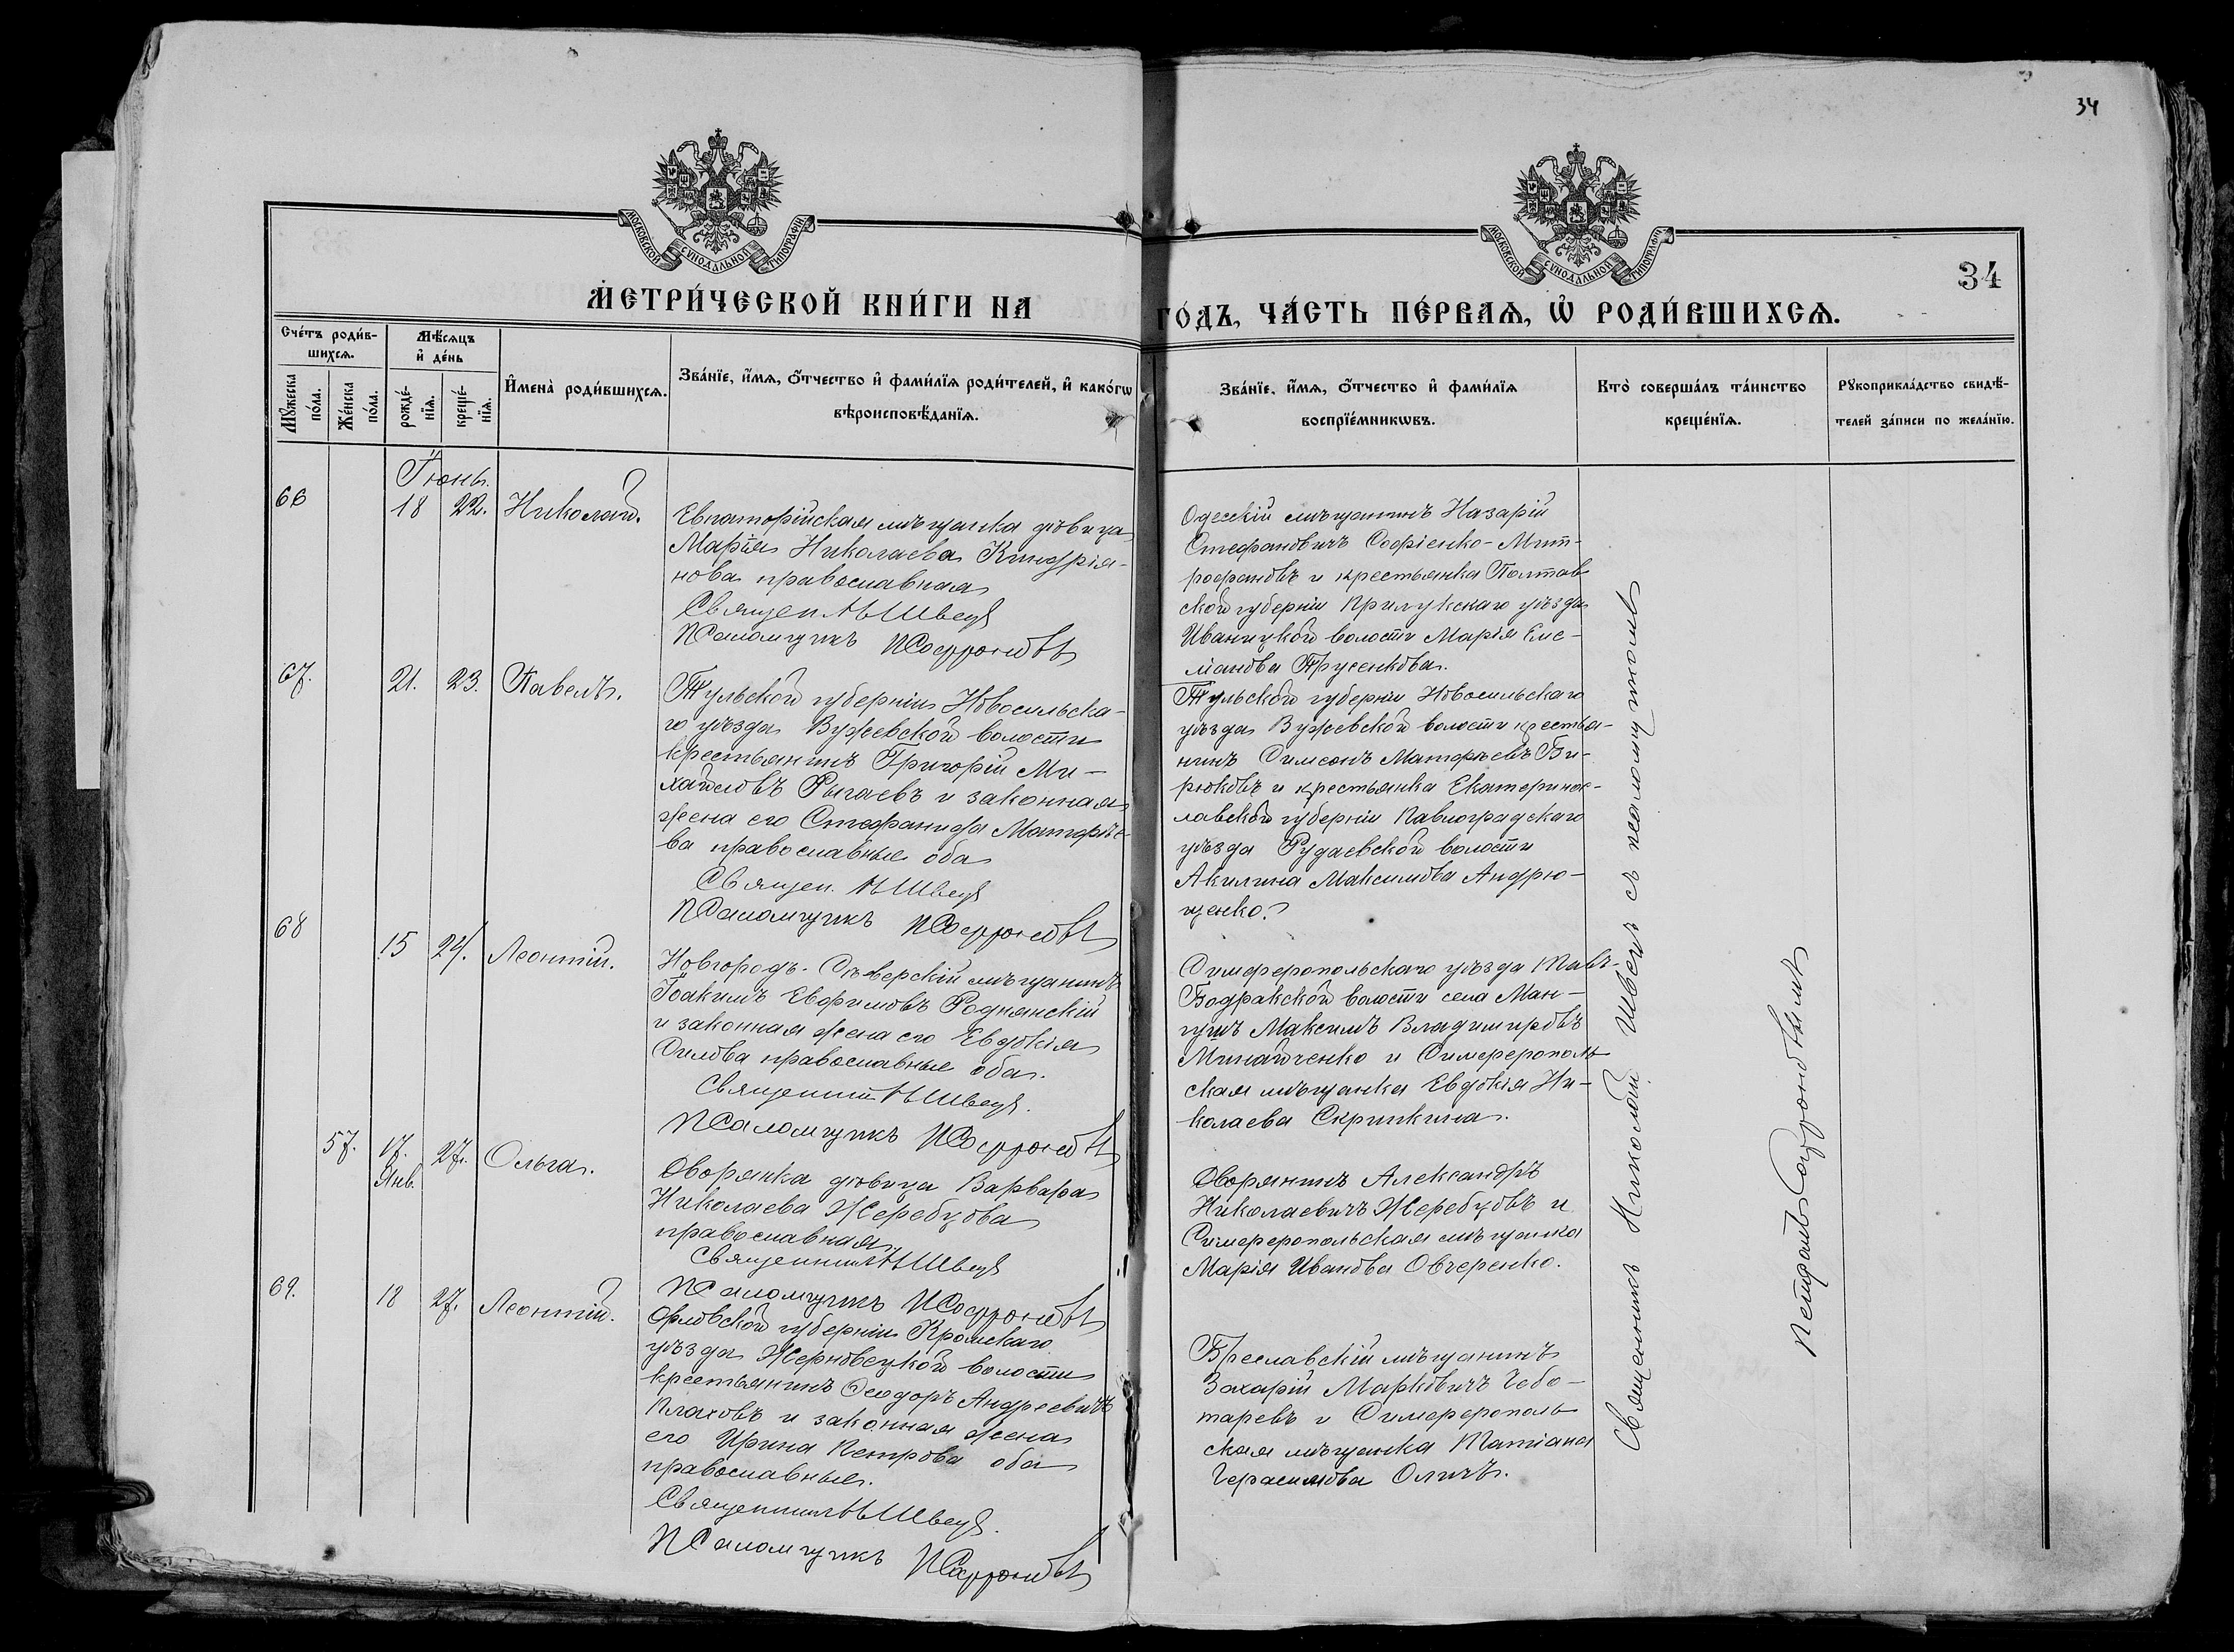 34
МОСКОВСКОЙ СѴНОДАЛЬНОЙ ТИПОГРАФІИ
МОСКОВСКОЙ СѴНОДАЛЬНОЙ ТИПОГРАФІИ
34
МЕТРИ́ЧЕСКОЙ КНИ́ГИ НА ГО́ДЪ, ЧА́СТЬ ПЕ́РВАѦ, Ѡ҆ РОДИ́ВШИХСѦ.
Сче́тъ роди́в-
шихсѧ.
Мꙋ́жеска
по́ла.
Же́нска
по́ла.
Мѣ́сѧцъ
и҆ де́нь
рожде́-
нїѧ.
креще́-
нїѧ.
И҆мена̀ роди́вшихсѧ.
Зва́нїе, и҆́мѧ, ѻ҆́тчество и҆ фами́лїѧ роди́телей, и҆ како́гѡ
вѣроисповѣ́данїѧ.
Зва́нїе, и҆́мѧ, ѻ҆́тчество и҆ фами́лїѧ
воспрїе́мникѡвъ.
Кто̀ соверша́лъ та́инство
креще́нїѧ.
Рꙋкоприкла́дство свидѣ́-
телей за́писи по жела́нїю.
Іюнь.
66 18 22. Николай.
Евпаторійская мѣщанка дѣвица
Марія Николаева Киндрія-
нова православная
Священ. Н Швецъ
Псаломщикъ П Софроновъ
Одесскій мѣщанинъ Назарій
Стефановичъ Софіенко-Мит-
рофановъ и крестьянка Полтав
ской губерніи Прилукскаго уѣзда
Иваницкой волости Марія Еме-
ліанова Трусенкова.
67. 21. 23. Павелъ.
Тульской губерніи Новосильска-
го уѣзда Вужевской волости
крестьянинъ Григорій Ми-
хайловъ Рыгаевъ и законная
жена его Стефанида Матфѣе-
ва православные оба
Священ. Н Швецъ
Псаломщикъ П Софроновъ
Тульской губерніи Новосильскаго
уѣзда Вужевской волости крестья-
нинъ Симеонъ Матфѣевъ Би-
рюковъ и крестьянка Екатеринос-
лавской губерніи Павлоградскаго
уѣзда Рудаевской волости
Акилина Максимова Андрю-
щенко.
68 15 24. Леонтій.
Новгородъ-Сѣверскій мѣщанинъ
Іоакимъ Евфимовъ Роднянскій
и законная жена его Евдокія
Силова православные оба.
Священник Н Швецъ.
Псаломщикъ П Софроновъ
Симферопольскаго уѣзда Тавъ-
Бодракской волости села Ман-
гушъ Максимъ Владимировъ
Минайченко и Симферополь
ская мѣщанка Евдокія Ни-
колаева Скрипкина.
57. 17. Янв. 27. Ольга.
Дворянка дѣвица Варвара
Николаева Жеребцова
православная
Священник Н Швецъ
Псаломщикъ П Софроновъ
Дворянинъ Александръ
Николаевичъ Жеребцовъ и
Симферопольская мѣщанка
Марія Иванова Овчеренко.
69. 18 27. Леонтій.
Орловской губерніи Кромскаго
уѣзда Жерновецкой волости
крестьянинъ Ѳеодоръ Андреевичъ
Плаховъ и законная жена
его Ирина Петрова оба
православные.
Священник Н Швецъ.
Псаломщикъ П Софроновъ
Бреславскій мѣщанинъ
Захарій Марковичъ Чебо-
таревъ и Симферополь
ская мѣщанка Татіана
Герасимова Оличъ.
Священникъ Николай Швецъ съ псаломщикомъ
Петромъ Софроновымъ